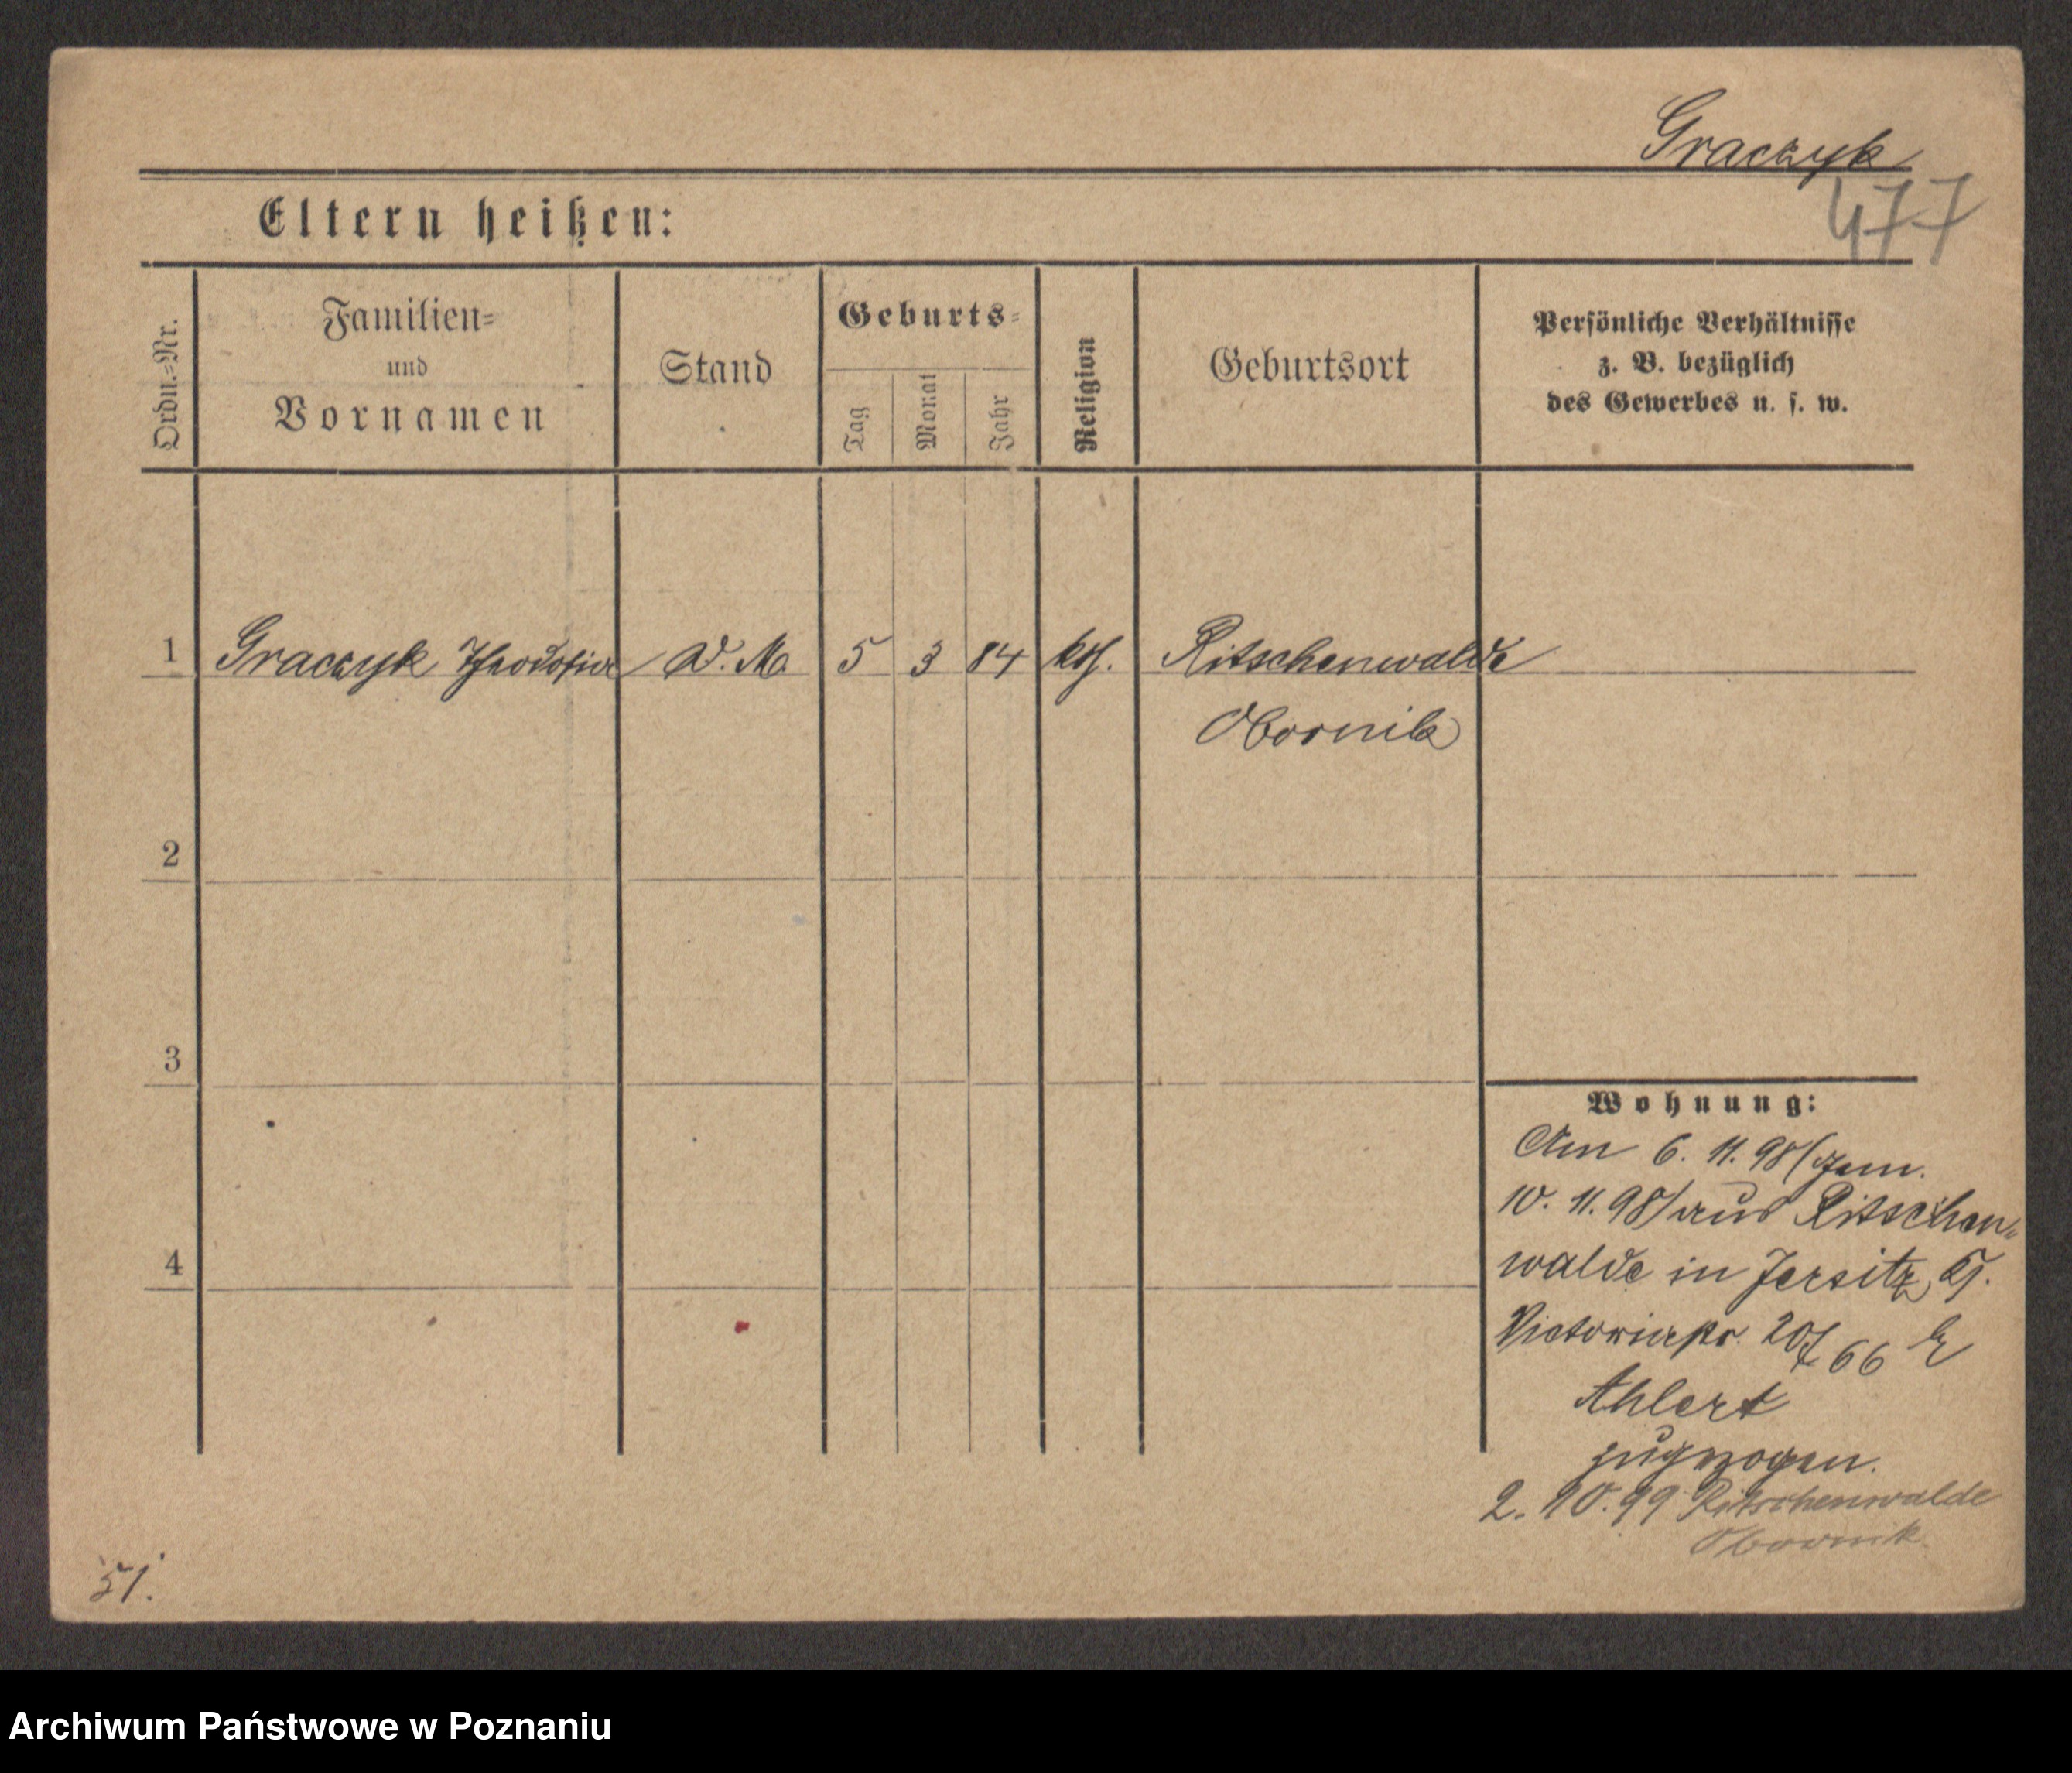 Graczyk
477
Eltern heißen:
Ordn.-Nr.
Familien-
und
Vornamen
Stand
Geburts-
Tag
Monat
Jahr
Religion
Geburtsort
Persönliche Verhältnisse
z. B. bezüglich
des Gewerbes u. s. w.
1 Graczyk Theodosia D. M. 5 3 84 kth. Ritschenwalde
Obornik
2
3
4
Wohnung:
Am 6. 11. 98/gem.
10. 11. 98/aus Ritschen-
walde in Jersitz,
Victoriastr. 20 66
Ahlert
zugezogen.
2. 10. 99 Ritschenwalde
Obornik
51.
Archiwum Państwowe w Poznaniu